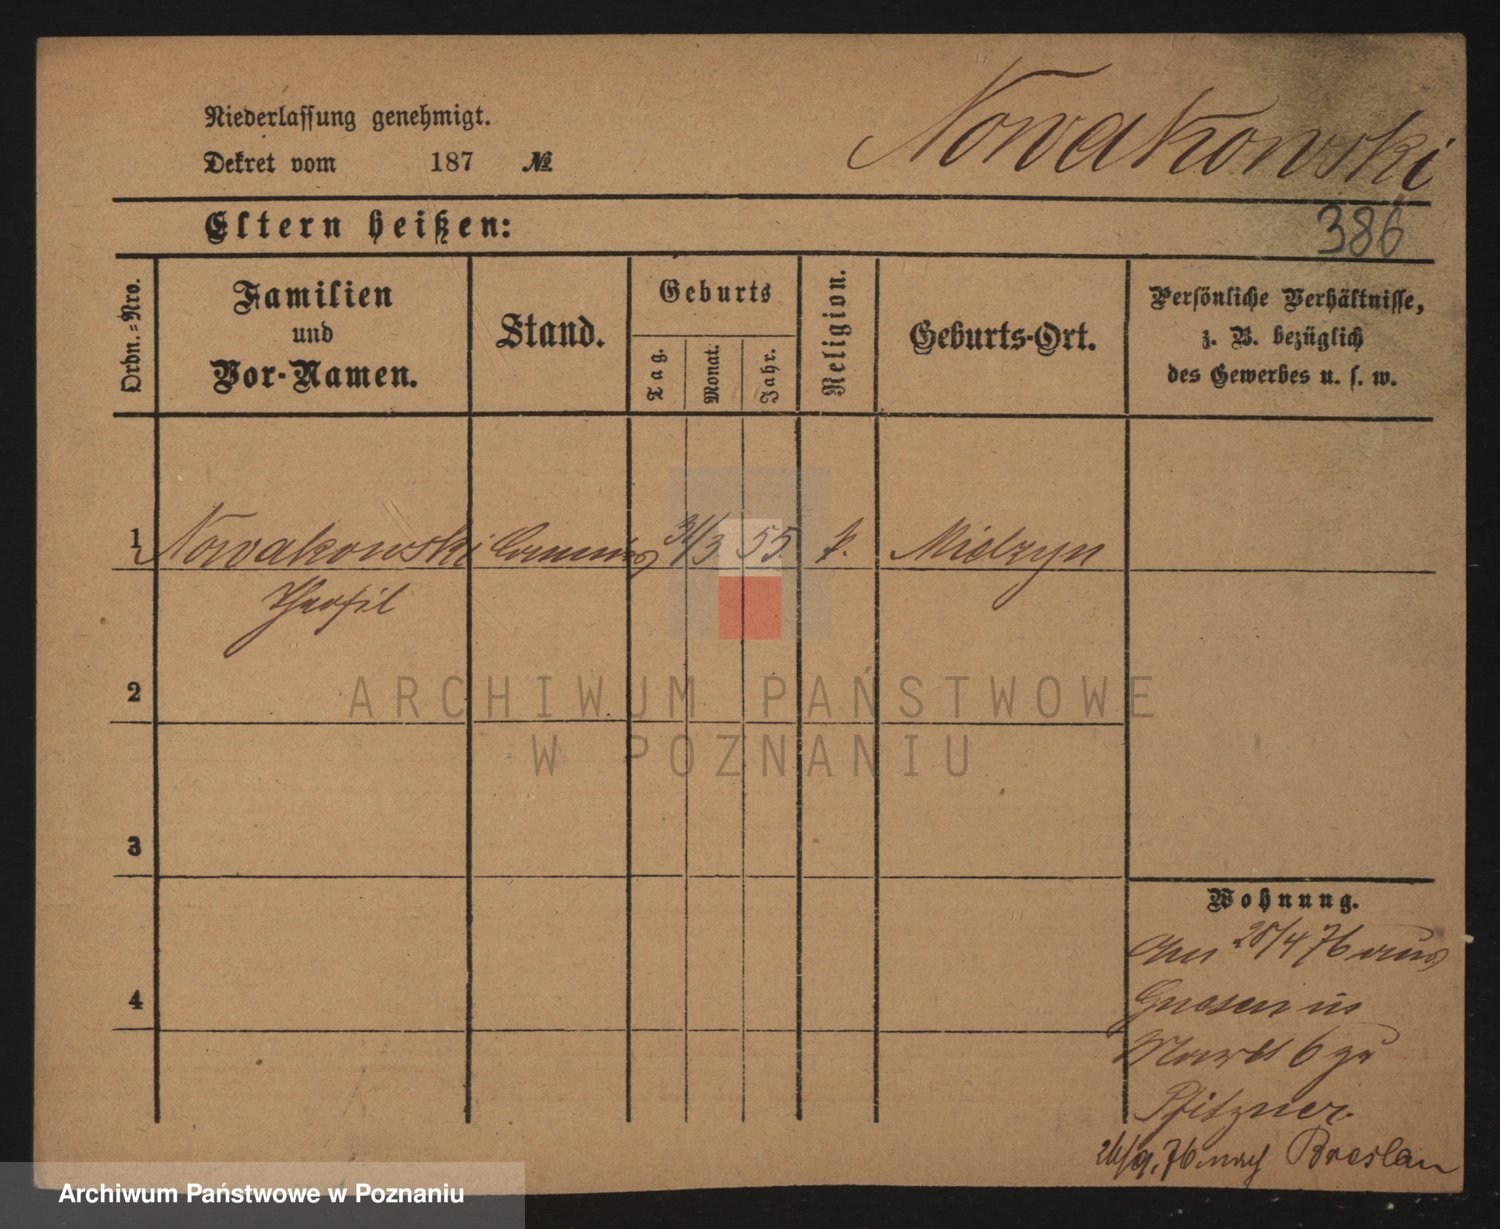 Niederlassung genehmigt.
Nowakowski
Dekret vom 187 №
Eltern heißen:
386
Ordn.=Nro.
Familien
und
Vor-Namen.
Stand.
Geburts
Tag.
Monat.
Jahr.
Religion.
Geburts-Ort.
Persönliche Verhältnisse,
z. B. bezüglich
des Gewerbes u. s. w.
1 Nowakowski Commis 31/3 55. k. Mielzyn
Theofil
2
ARCHIWUM PAŃSTWOWE
W POZNANIU
3
Wohnung.
Am 28/4 76 aus
Gnesen in
4
Markt 6 zu
Pfitzner
26/9. 76 nach Breslau
Archiwum Państwowe w Poznaniu